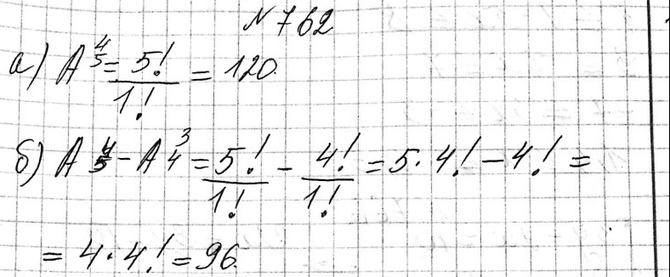 №762
а) A⁴₅ = 5!/1! = 120
б) A⁴₅ - A³₄ = 5!/1! - 4!/1! = 5·4! - 4! =
= 4·4! = 96